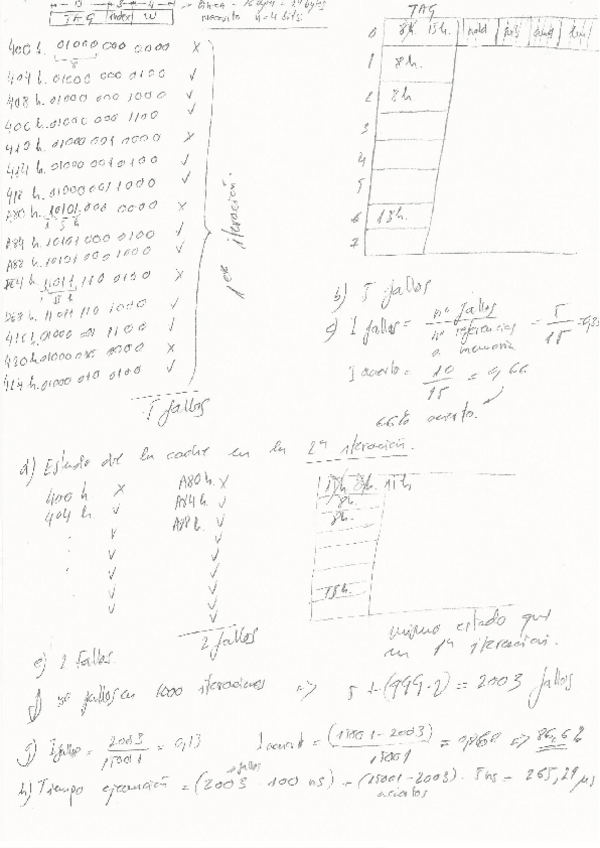 TAG index W
necesito 4 bits
400 h. 01000 000 0000 x
404 h. 01000 000 0100 ✓
408 h. 01000 000 1000 ✓
40C h. 01000 000 1100 ✓
410 h. 01000 001 0000 x
414 h. 01000 001 0100 ✓
418 h. 01000 001 1000 ✓
A80 h. 10101 000 0000 x
A84 h. 10101 000 0100 ✓
A88 h. 10101 000 1000 ✓
h. 11011 110 0100 x
h. 11011 110 1000 ✓
41C h. 01000 001 1100 ✓
420 h. 01000 010 0000 x
424 h. 01000 010 0100 ✓
5 fallos
1ª iteración.
TAG
0 8h 15h.
1 8h.
2 8h
3
4
5
6 1Bh.
7
b) 5 fallos
c) I fallos = nº fallos / nº referencias a memoria = 5 / 15 = 0,33
I acierto = 10 / 15 = 0,66
66% acierto.
d) Estado de la cache en la 2ª iteración.
400 h x A80 h. x
404 h. ✓ A84 h. ✓
A88 h. ✓
2 fallos
15h
8h.
8h.
1Bh.
mismo estado que
en 1ª iteración.
e) 2 fallos.
f) nº fallos en 1000 iteraciones => 5 + (999·2) = 2003 fallos
g) I fallo = 2003 / 15001 = 0,13 I acierto = (15001 - 2003) / 15001 = 0,866 => 86,6%
h) Tiempo ejecución = (2003 · 100 ns) + (15001-2003) · 5ns = 265,29 µs
fallos
aciertos